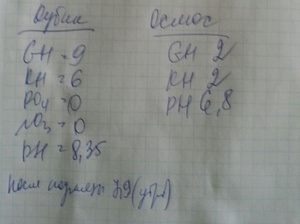 Рубин
GH = 9
KH = 6
PO4 = 0
NO3 = 0
PH = 8,35
после 7,9 (утро)
Осмос
GH 2
KH 2
PH 6,8